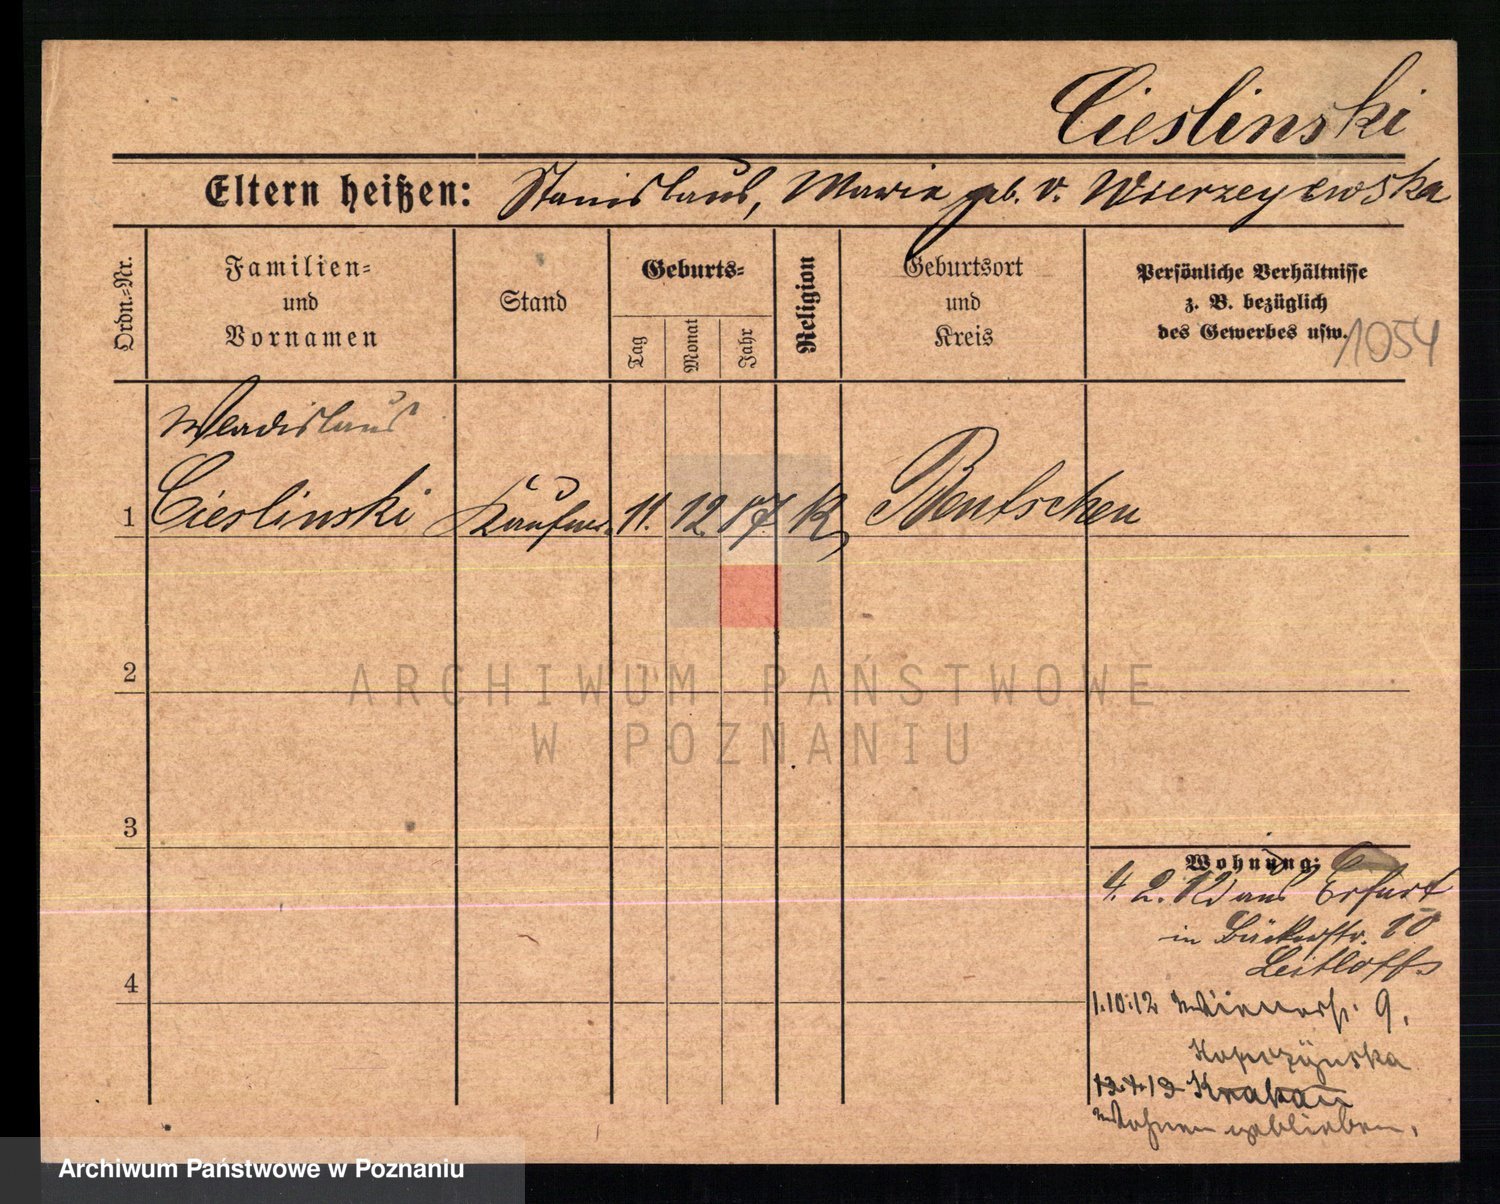 Cieslinski
Eltern heißen: Stanislaus, Maria geb. v. Wierzeyewska
Ordn.=Nr.
Familien=
und
Vornamen
Stand
Geburts=
Tag
Monat
Jahr
Religion
Geburtsort
und
Kreis
Persönliche Verhältnisse
z. B. bezüglich
des Gewerbes usw.
1054
Wladislaus
1 Cieslinski Kaufm. 11. 12. 87 K Bentschen
2
3
4
Wohnung:
4. 2. 12 aus Erfurt
in Bäckerstr. 10
Leitloff
1.10.12 Wienerstr. 9.
Kopczynska
Krakau
Wohnen geblieben.
ARCHIWUM PAŃSTWOWE
W POZNANIU
Archiwum Państwowe w Poznaniu